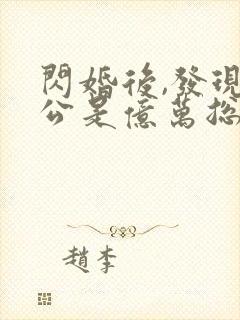 閃婚後,發現
公是億萬總
趙李